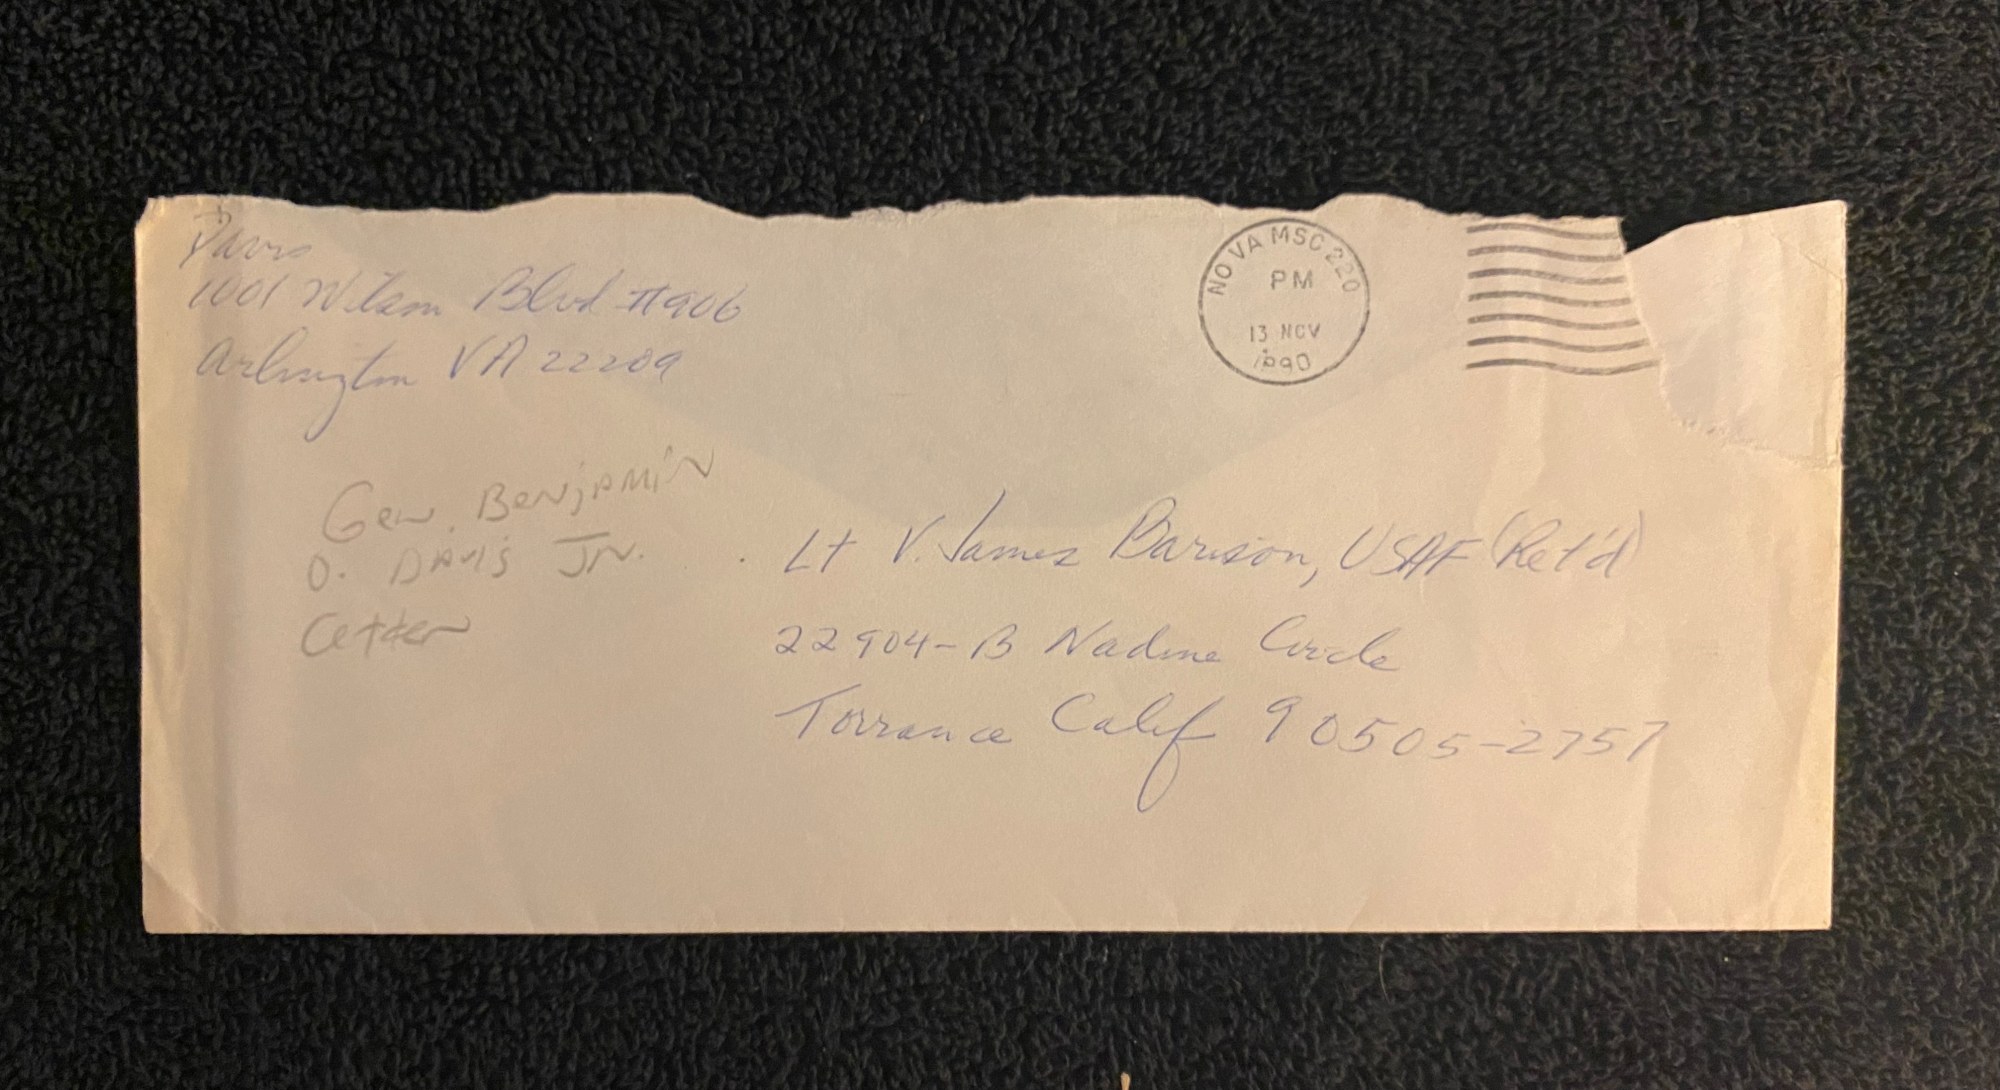 Davis
1001 Wilson Blvd #906
Arlington VA 22209
NO VA MSC 220
PM
13 NOV
1990
Gen. Benjamin
O. Davis Jr.
Letter
Lt V. James Barison, USAF (Ret'd)
22904-B Nadine Circle
Torrance Calif 90505-2757